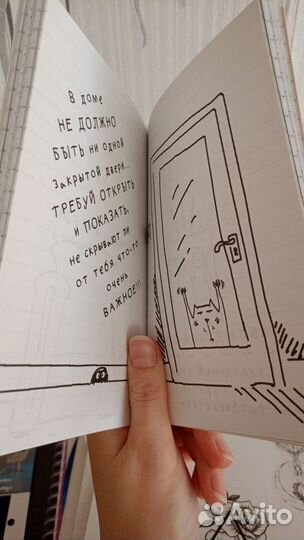 В доме
НЕ ДОЛЖНО
БЫТЬ НИ ОДНОЙ
Закрытой двери...
ТРЕБУЙ ОТКРЫТЬ
И ПОКАЗАТЬ,
не скрывают ли
от тебя что-то
очень
ВАЖНОЕ!!!
Avito